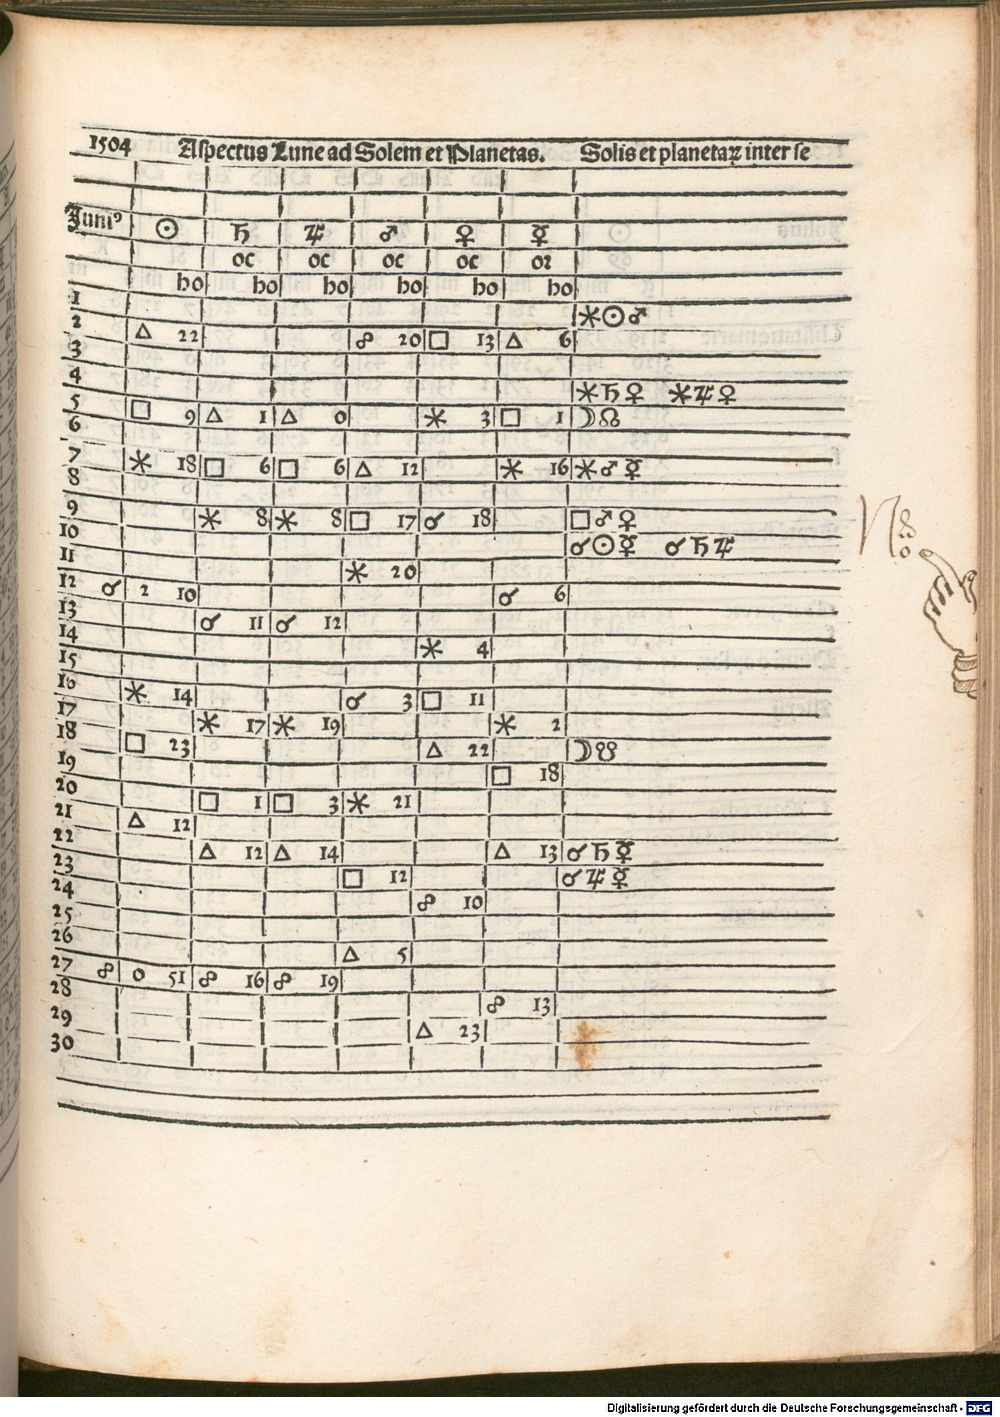 1504 Aſpectus Lune ad Solem et Planetas. Solis et planetaꝝ inter ſe
Juniꝰ ☉ ♄ ♃ ♂ ♀ ☿
oc oc oc oc or
ho ho ho ho ho ho
1 ⚹☉♂
2 △ 22 ☍ 20 □ 13 △ 6
3
4 ⚹♄♀ ⚹♃♀
5 □ 9 △ 1 △ 0 ⚹ 3 □ 1 ☽☊
6
7 ⚹ 18 □ 6 □ 6 △ 12 ⚹ 16 ⚹♂☿
8
9 ⚹ 8 ⚹ 8 □ 17 ☌ 18 □♂♀
10 ☌☉☿ ☌♄♃
11 ⚹ 20
12 ☌ 2 10 ☌ 6
13 ☌ 11 ☌ 12
14 ⚹ 4
15
16 ⚹ 14 ☌ 3 □ 11
17 ⚹ 17 ⚹ 19 ⚹ 2
18 □ 23 △ 22 ☽☋
19 □ 18
20 □ 1 □ 3 ⚹ 21
21 △ 12
22 △ 12 △ 14 △ 13 ☌♄☿
23 □ 12 ☌♃☿
24 ☍ 10
25
26 △ 5
27 ☍ 0 51 ☍ 16 ☍ 19
28 ☍ 13
29 △ 23
30
Digitalisierung gefördert durch die Deutsche Forschungsgemeinschaft - DFG